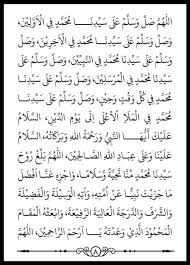 اللَّهُمَّ صَلِّ وَسَلِّمْ عَلَى سَيِّدِنَـــا مُحَمَّدٍ فِي الْأَوَّلِينَ،
وَصَلِّ وَسَلِّمْ عَلَى سَيِّدِنَا مُحَمَّدٍ فِي الْآخِرِينَ، وَصَلِّ
وَسَلِّمْ عَلَى سَيِّدِنَا مُحَمَّدٍ فِي النَّبِيِّينَ، وَصَلِّ وَسَلِّمْ عَلَى
سَيِّدِنَا مُحَمَّدٍ فِي الْمُرْسَلِينَ، وَصَلِّ وَسَلِّمْ عَلَى سَيِّدِنَا
مُحَمَّدٍ فِي كُلِّ وَقْتٍ وَحِينٍ، وَصَلِّ وَسَلِّمْ عَلَى سَيِّدِنَـــا
مُحَمَّدٍ فِي الْمَلَإِ الْأَعْلَى إِلَى يَوْمِ الدِّينِ، السَّلَامُ
عَلَيْكَ أَيُّهَـــا النَّبِيُّ وَرَحْمَةُ اللهِ وَبَرَكَاتُهُ، السَّلَامُ
عَلَيْنَا وَعَلَى عِبَادِ اللهِ الصَّالِحِينَ، اللَّهُمَّ بَلِّغْ رُوحَ
سَيِّدِنَا مُحَمَّدٍ مِنَّا تَحِيَّةً وَسَلَامًا، وَاجْزِهِ عَنَّا أَفْضَلَ
مَا جَزَيْتَ نَبِيًّا عَنْ أُمَّتِهِ، وَآتِهِ الْوَسِيلَةَ وَالْفَضِيلَةَ
وَالشَّرَفَ وَالدَّرَجَةَ الْعَالِيَةَ الرَّفِيعَةَ، وَابْعَثْهُ الْمَقَامَ
الْمَحْمُودَ الَّذِي وَعَدْتَهُ يَا أَرْحَمَ الرَّاحِمِينَ، اللَّهُمَّ
٨